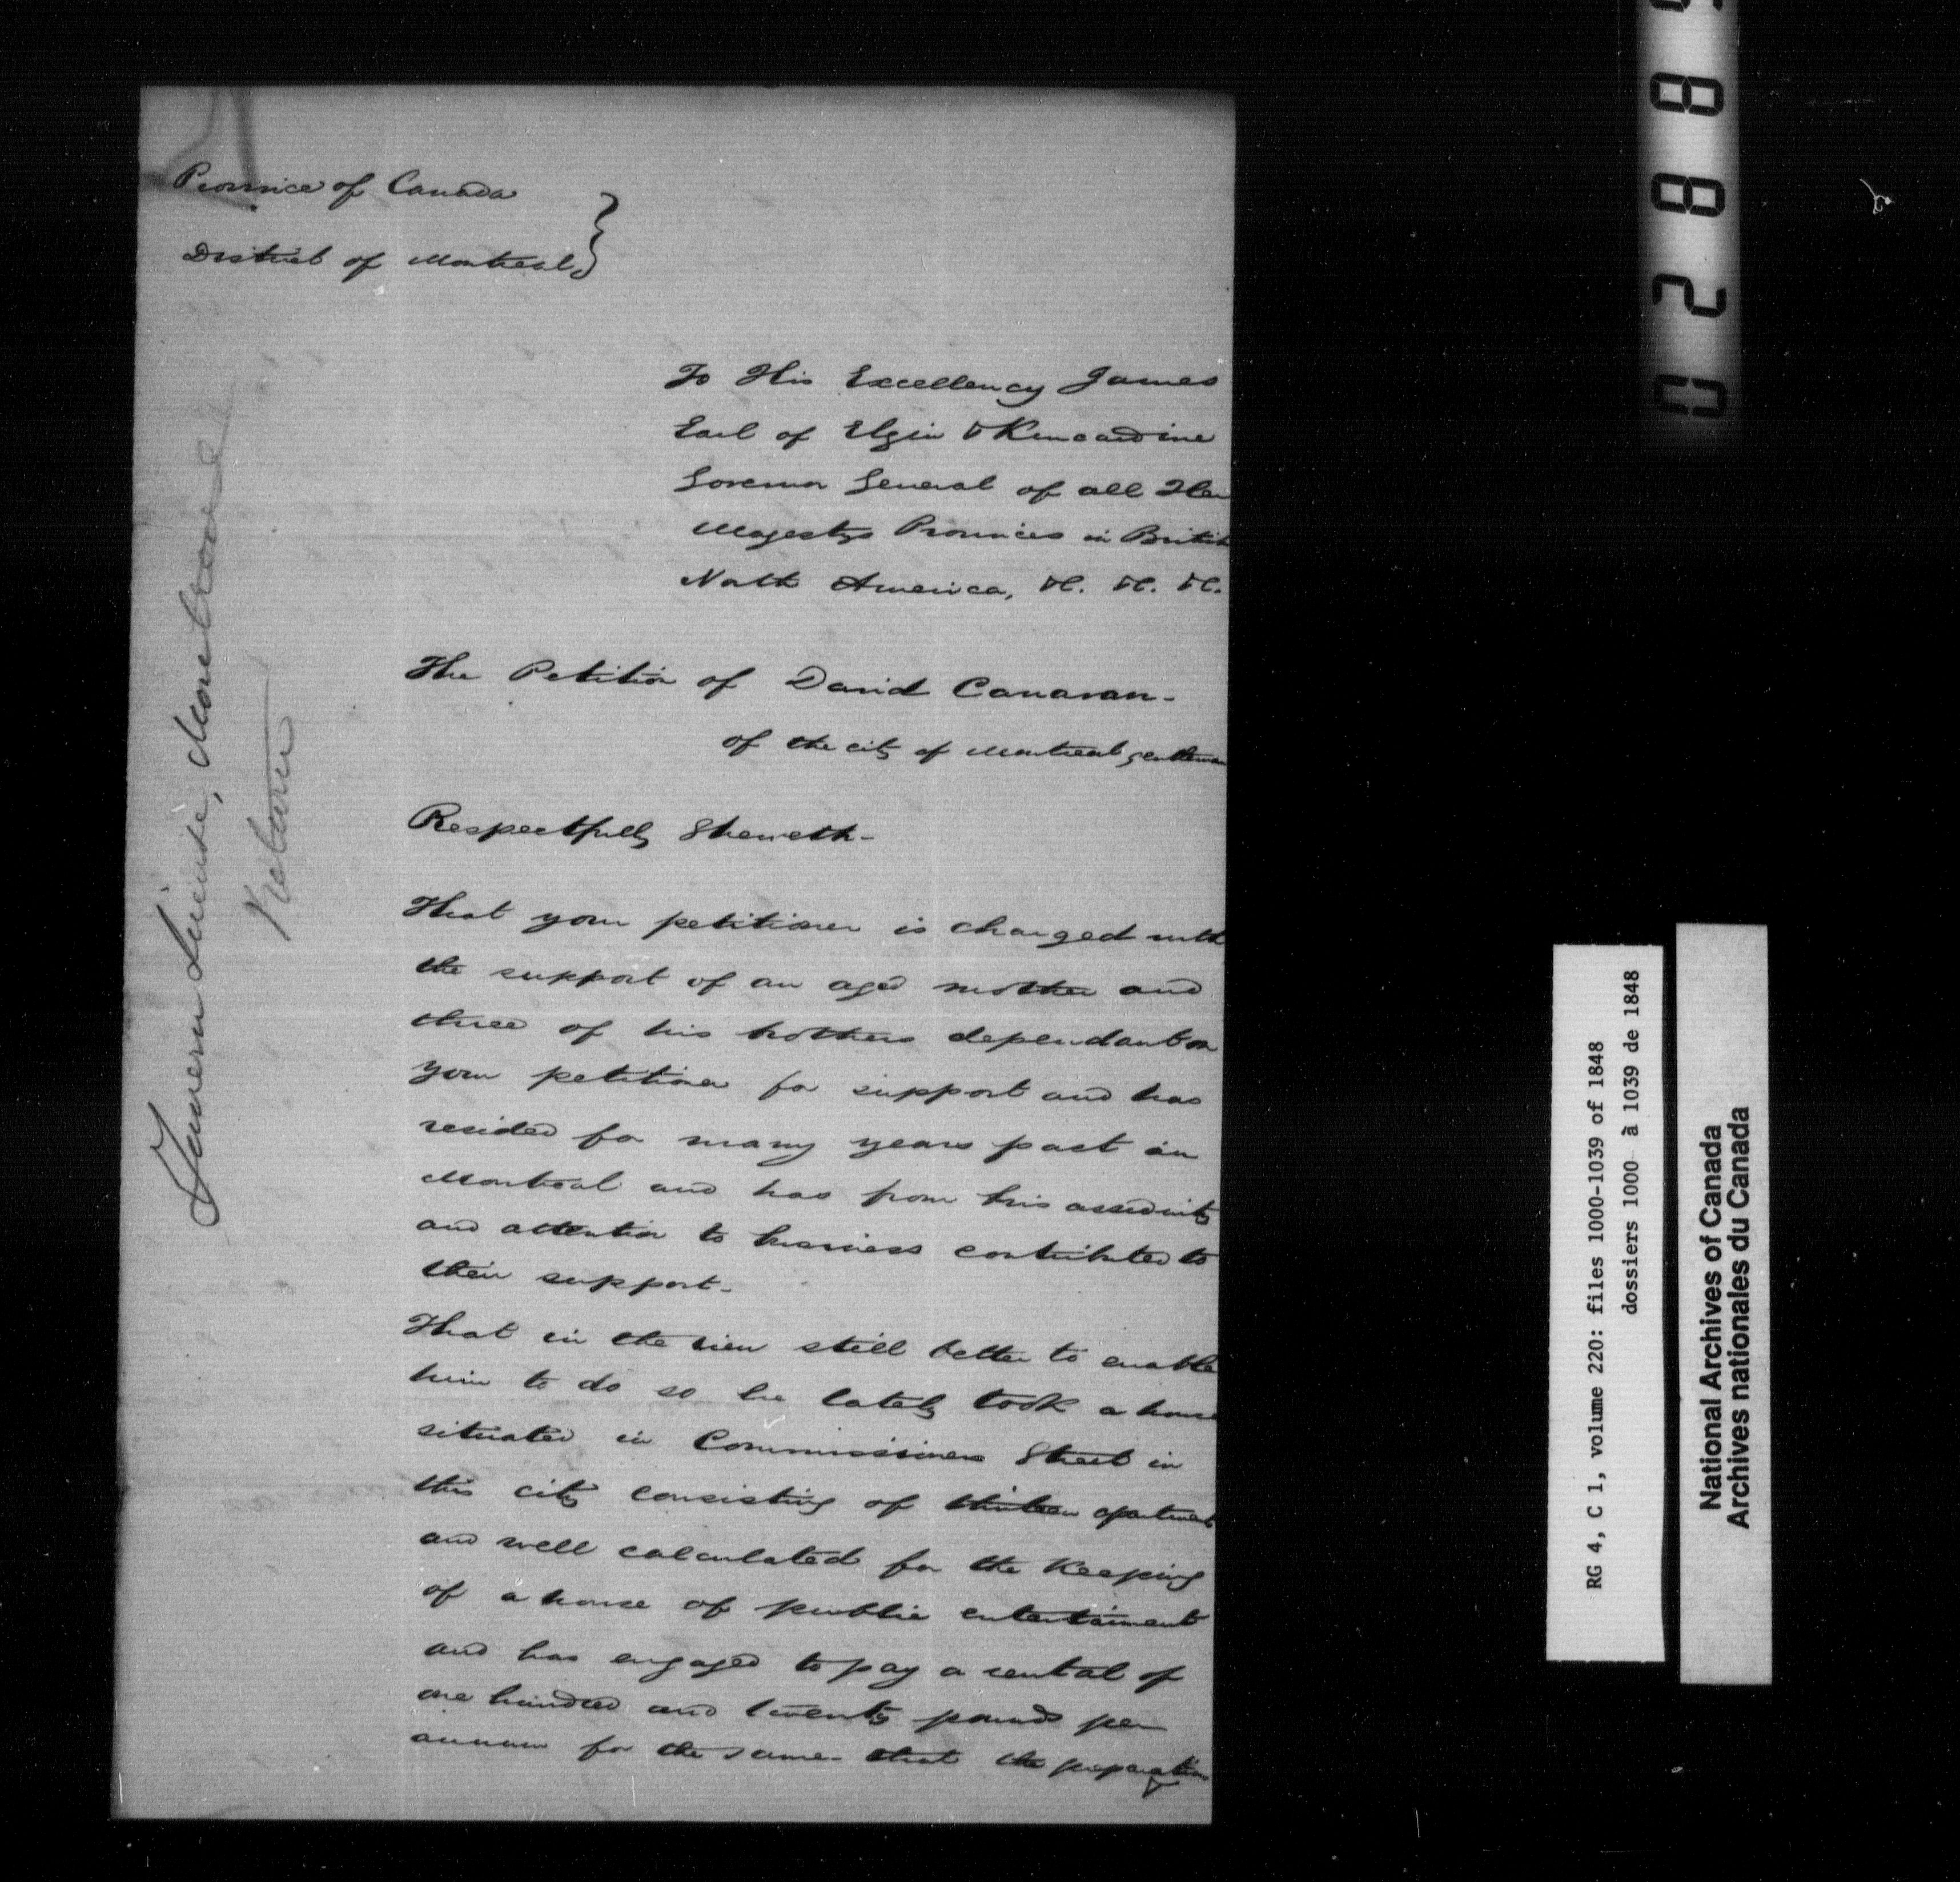 Province of Canada
District of Montreal }
To His Excellency James
Earl of Elgin & Kincardine
Governor General of all Her
Majestys Provinces in British
North America, &c. &c. &c.
The Petition of David Canavan-
of the city of Montreal gentleman
Respectfully Sheweth-
That your petitioner is charged with
the support of an aged mother and
three of his brothers dependant on
your petitioner for support and has
resided for many years past in
Montreal and has from his assiduity
and attention to business contributed to
their support-
That in the view still better to enable
him to do so he lately took a house
situated in Commissioners Street in
this city consisting of thirteen apartments
and well calculated for the Keeping
of a house of public entertaiment
and has engaged to pay a rental of
one hundred and twenty pounds per
annum for the same- that the preparations
Tavern License, Montreal
Return
02885
RG 4, C 1, volume 220: files 1000-1039 of 1848
dossiers 1000 à 1039 de 1848
National Archives of Canada
Archives nationales du Canada